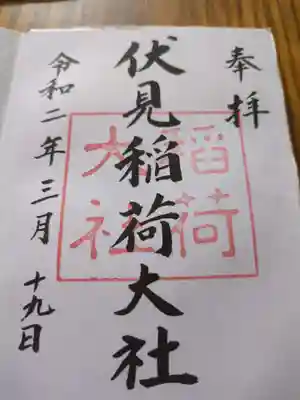 奉拝
伏見稲荷大社
稲荷
大社
令和二年三月十九日